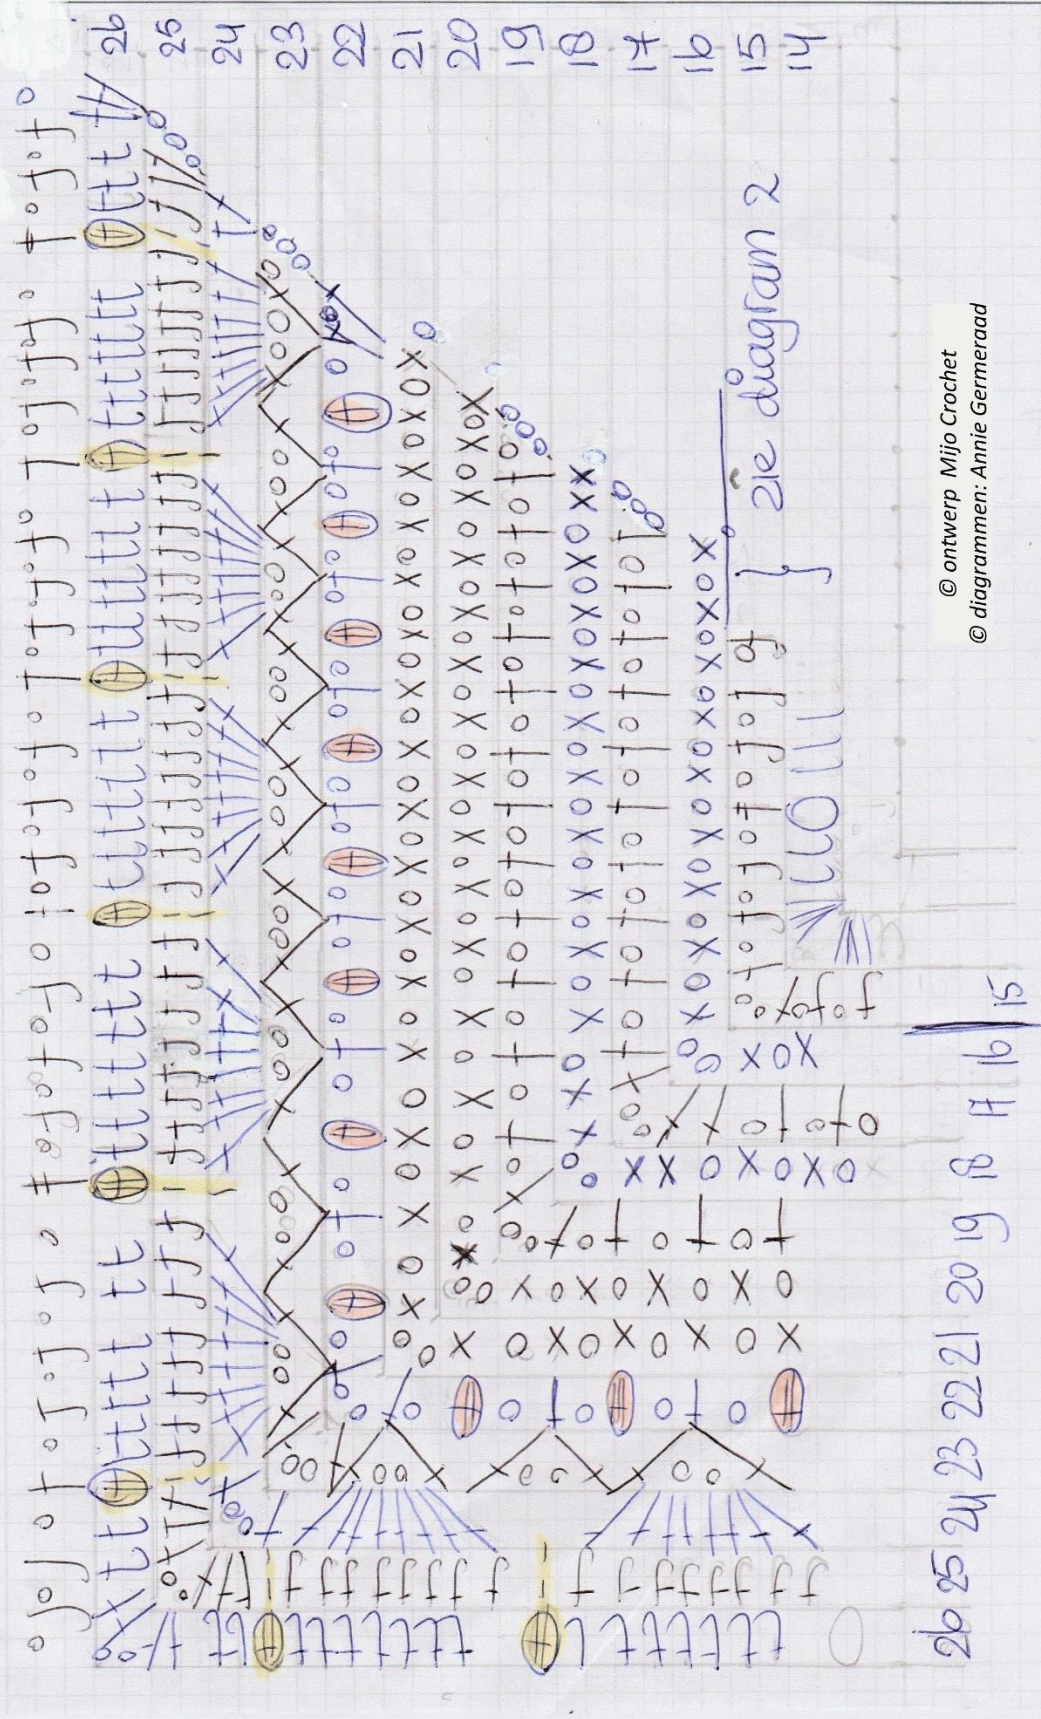 26
25
24
23
22
21
20
19
18
17
16
15
14
zie diagram 2
© ontwerp Mijo Crochet
© diagrammen: Annie Germeraad
26 25 24 23 22 21 20 19 18 17 16 15